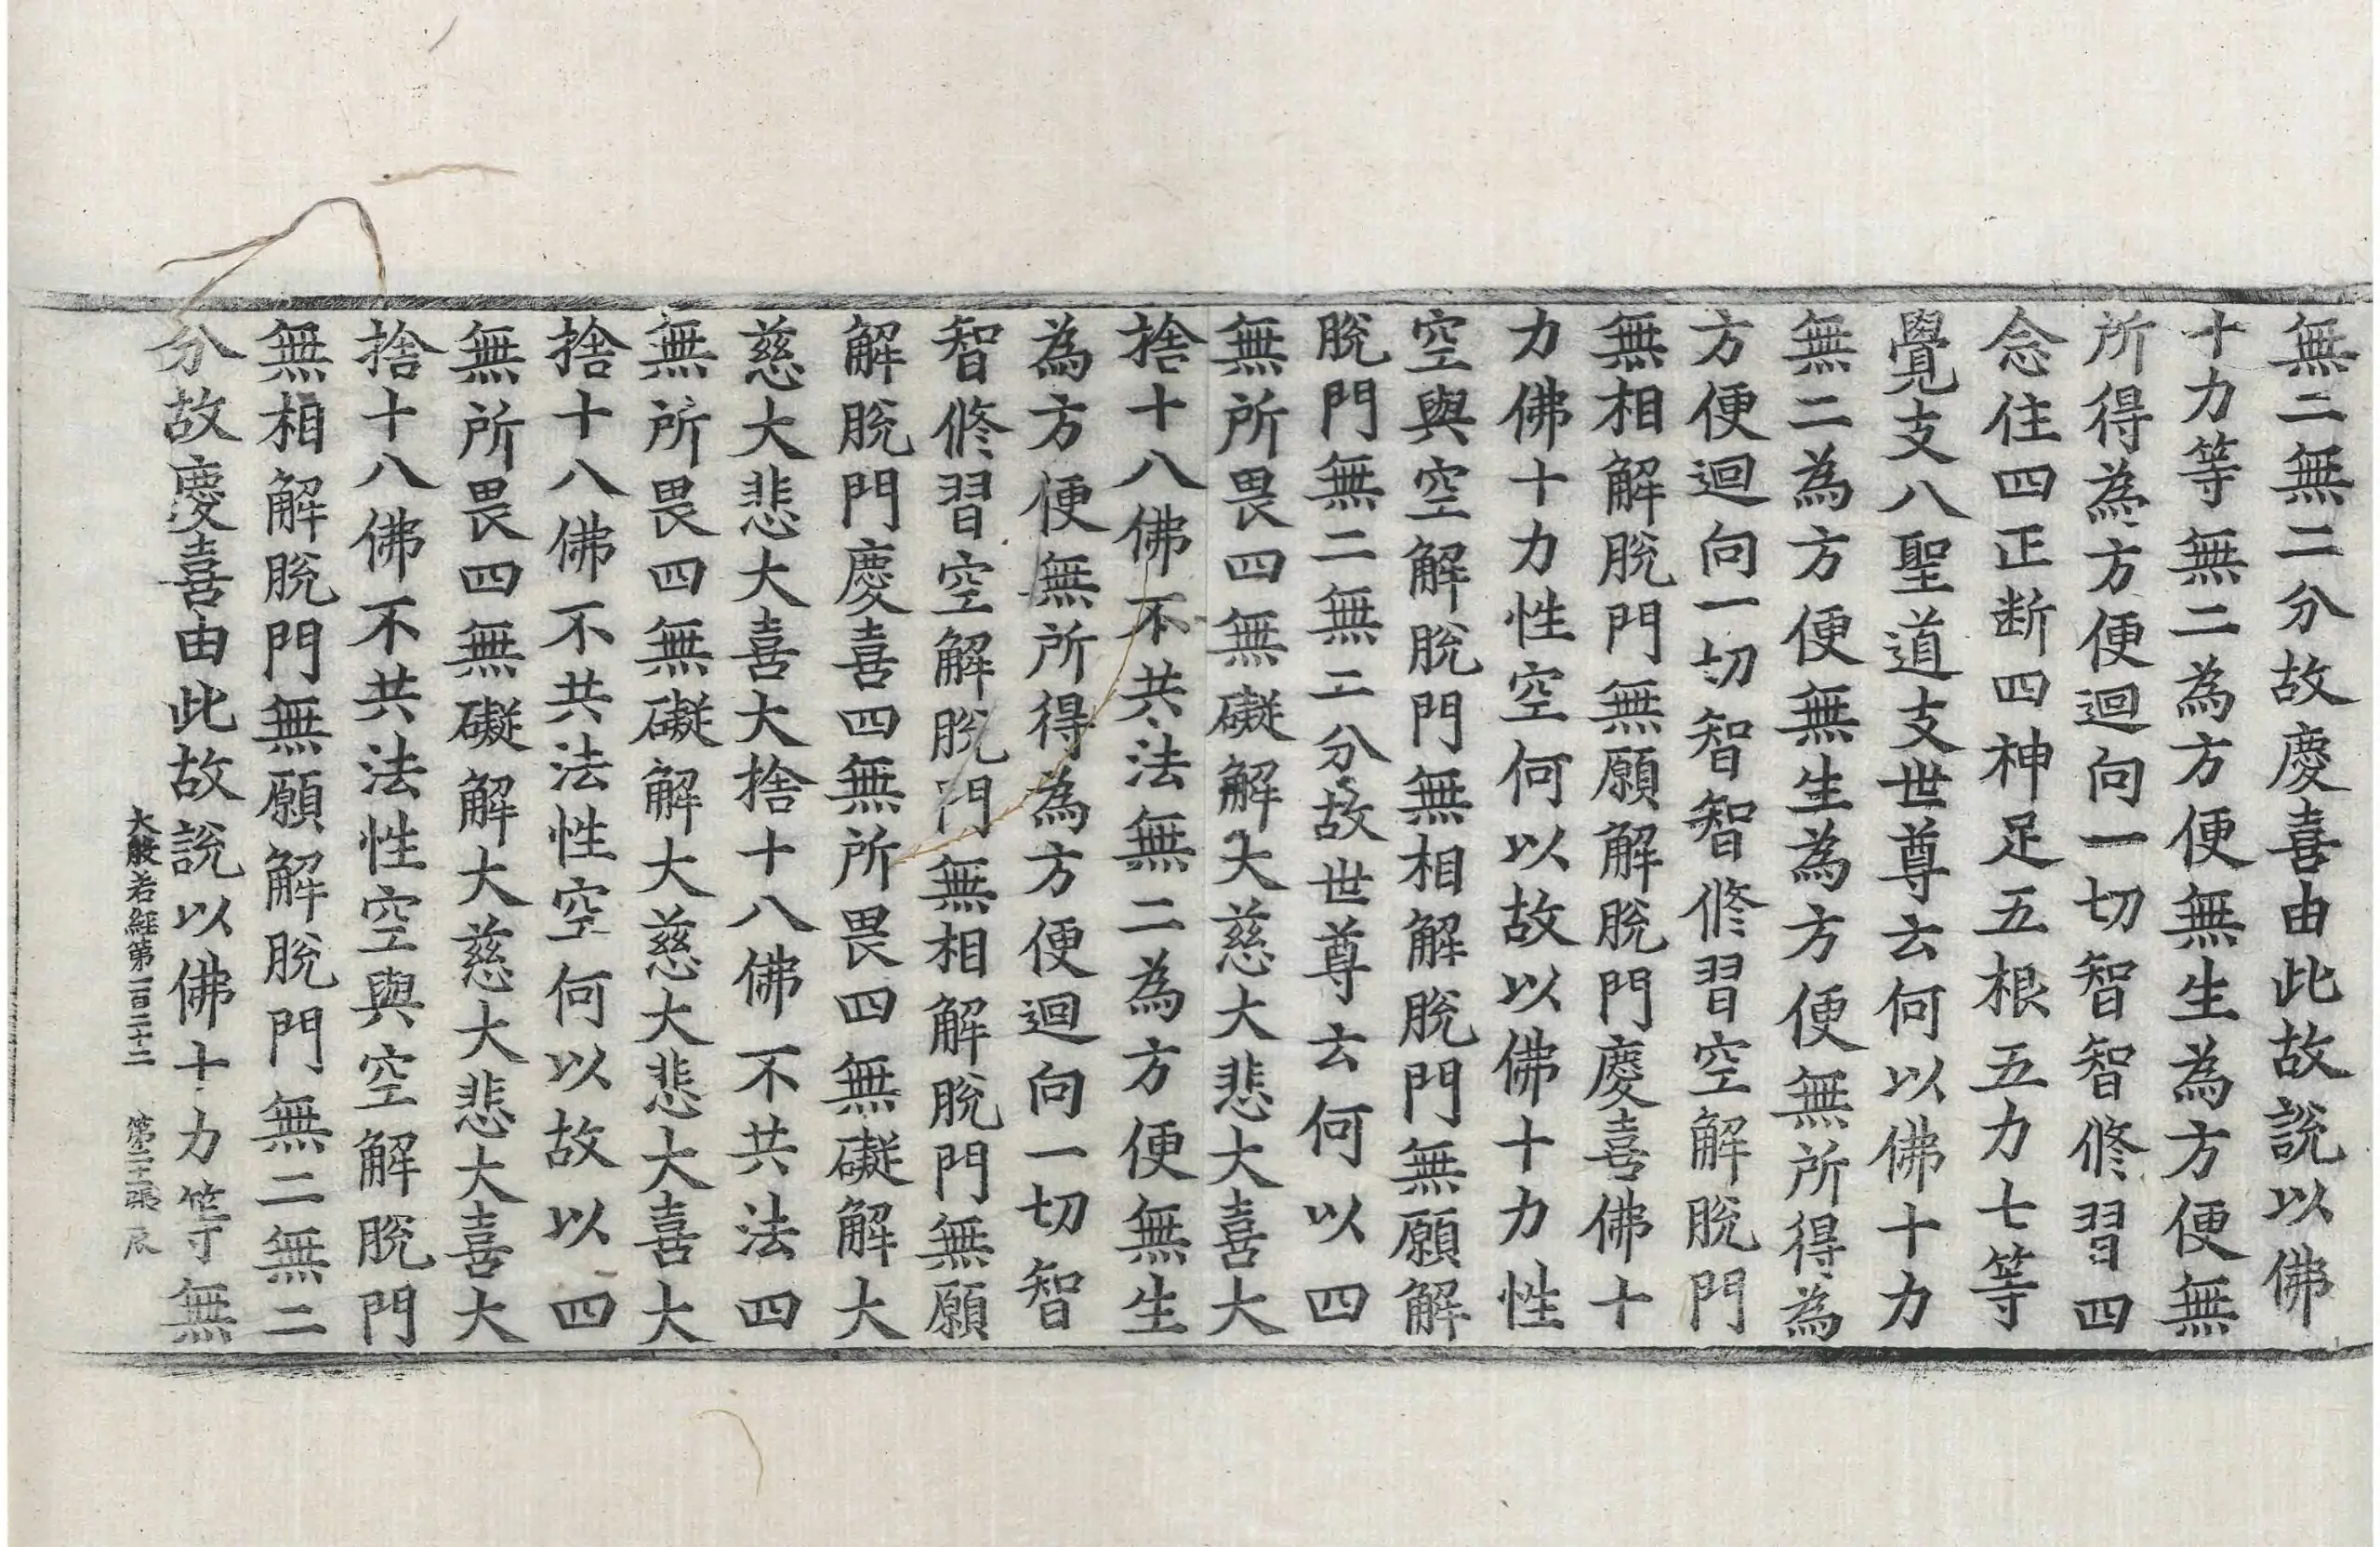 無二無二分故慶喜由此故說以佛
十力等無二為方便無生為方便無
所得為方便迴向一切智智修習四
念住四正断四神足五根五力七等
覺支八聖道支世尊云何以佛十力
無二為方便無生為方便無所得為
方便迴向一切智智修習空解脫門
無相解脫門無願解脫門慶喜佛十
力佛十力性空何以故以佛十力性
空與空解脫門無相解脫門無願解
脫門無二無二分故世尊云何以四
無所畏四無礙解大慈大悲大喜大
捨十八佛不共法無二為方便無生
為方便無所得為方便迴向一切智
智修習空解脫門無相解脫門無願
解脫門慶喜四無所畏四無礙解大
慈大悲大喜大捨十八佛不共法四
無所畏四無礙解大慈大悲大喜大
捨十八佛不共法性空何以故以四
無所畏四無礙解大慈大悲大喜大
捨十八佛不共法性空與空解脫門
無相解脫門無願解脫門無二無二
分故慶喜由此故說以佛十力等無
大般若經第一百二十二 第 張 辰